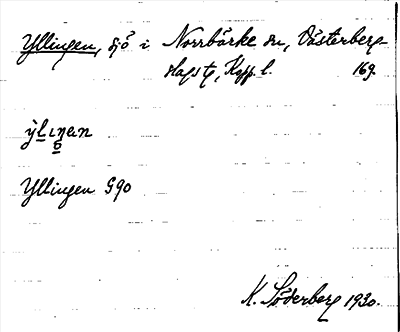 Yllingen, sjö i Norrbärke sn, Västerberg-
slags tg, Kopp. l. 169.
Yllingen G90
K. Söderberg 1930.